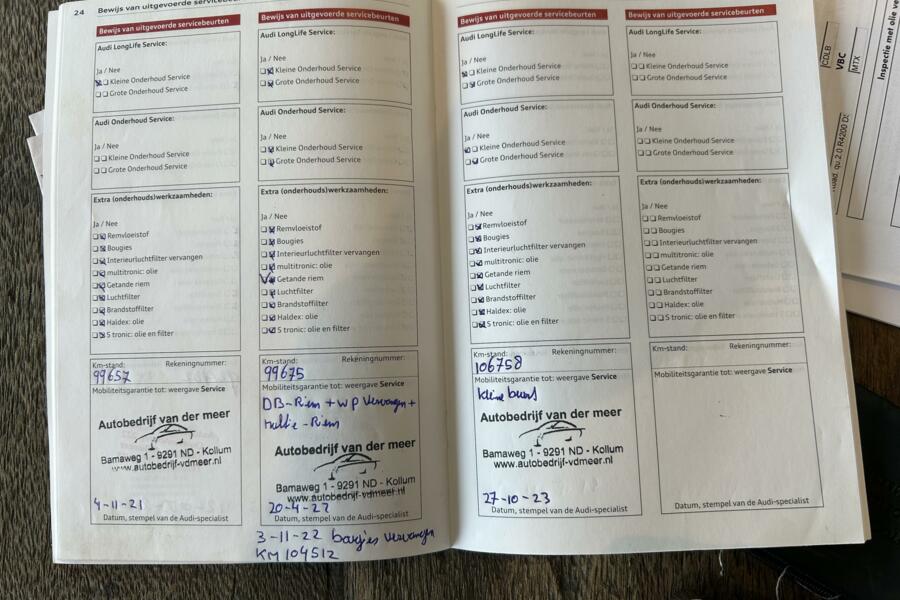 24 Bewijs van uitgevoerde servicebeurten
Bewijs van uitgevoerde servicebeurten
Audi LongLife Service:
Ja / Nee
Kleine Onderhoud Service
Grote Onderhoud Service
Audi Onderhoud Service:
Ja / Nee
Kleine Onderhoud Service
Grote Onderhoud Service
Extra (onderhouds)werkzaamheden:
Ja / Nee
Remvloeistof
Bougies
Interieurluchtfilter vervangen
multitronic: olie
Getande riem
Luchtfilter
Brandstoffilter
Haldex: olie
S tronic: olie en filter
Km-stand: Rekeningnummer:
99657
Mobiliteitsgarantie tot: weergave Service
Autobedrijf van der meer
Bamaweg 1 - 9291 ND - Kollum
www.autobedrijf-vdmeer.nl
4-11-21
Datum, stempel van de Audi-specialist
Bewijs van uitgevoerde servicebeurten
Audi LongLife Service:
Ja / Nee
Kleine Onderhoud Service
Grote Onderhoud Service
Audi Onderhoud Service:
Ja / Nee
Kleine Onderhoud Service
Grote Onderhoud Service
Extra (onderhouds)werkzaamheden:
Ja / Nee
Remvloeistof
Bougies
Interieurluchtfilter vervangen
multitronic: olie
Getande riem
Luchtfilter
Brandstoffilter
Haldex: olie
S tronic: olie en filter
Km-stand: Rekeningnummer:
99675
Mobiliteitsgarantie tot: weergave Service
DB-Riem + WP Vervangen +
Multie-Riem
Autobedrijf van der meer
Bamaweg 1 - 9291 ND - Kollum
www.autobedrijf-vdmeer.nl
20-4-22
Datum, stempel van de Audi-specialist
3-11-22 bougies Vervangen
KM 104512
Bewijs van uitgevoerde servicebeurten
Audi LongLife Service:
Ja / Nee
Kleine Onderhoud Service
Grote Onderhoud Service
Audi Onderhoud Service:
Ja / Nee
Kleine Onderhoud Service
Grote Onderhoud Service
Extra (onderhouds)werkzaamheden:
Ja / Nee
Remvloeistof
Bougies
Interieurluchtfilter vervangen
multitronic: olie
Getande riem
Luchtfilter
Brandstoffilter
Haldex: olie
S tronic: olie en filter
Km-stand: Rekeningnummer:
106758
Mobiliteitsgarantie tot: weergave Service
kleine beurt
Autobedrijf van der meer
Bamaweg 1 - 9291 ND - Kollum
www.autobedrijf-vdmeer.nl
27-10-23
Datum, stempel van de Audi-specialist
Bewijs van uitgevoerde servicebeurten
Audi LongLife Service:
Ja / Nee
Kleine Onderhoud Service
Grote Onderhoud Service
Audi Onderhoud Service:
Ja / Nee
Kleine Onderhoud Service
Grote Onderhoud Service
Extra (onderhouds)werkzaamheden:
Ja / Nee
Remvloeistof
Bougies
Interieurluchtfilter vervangen
multitronic: olie
Getande riem
Luchtfilter
Brandstoffilter
Haldex: olie
S tronic: olie en filter
Km-stand: Rekeningnummer:
Mobiliteitsgarantie tot: weergave Service
Datum, stempel van de Audi-specialist
CDLB
VBC
MTX
Inspectie met olie
qu.2.0 R4200